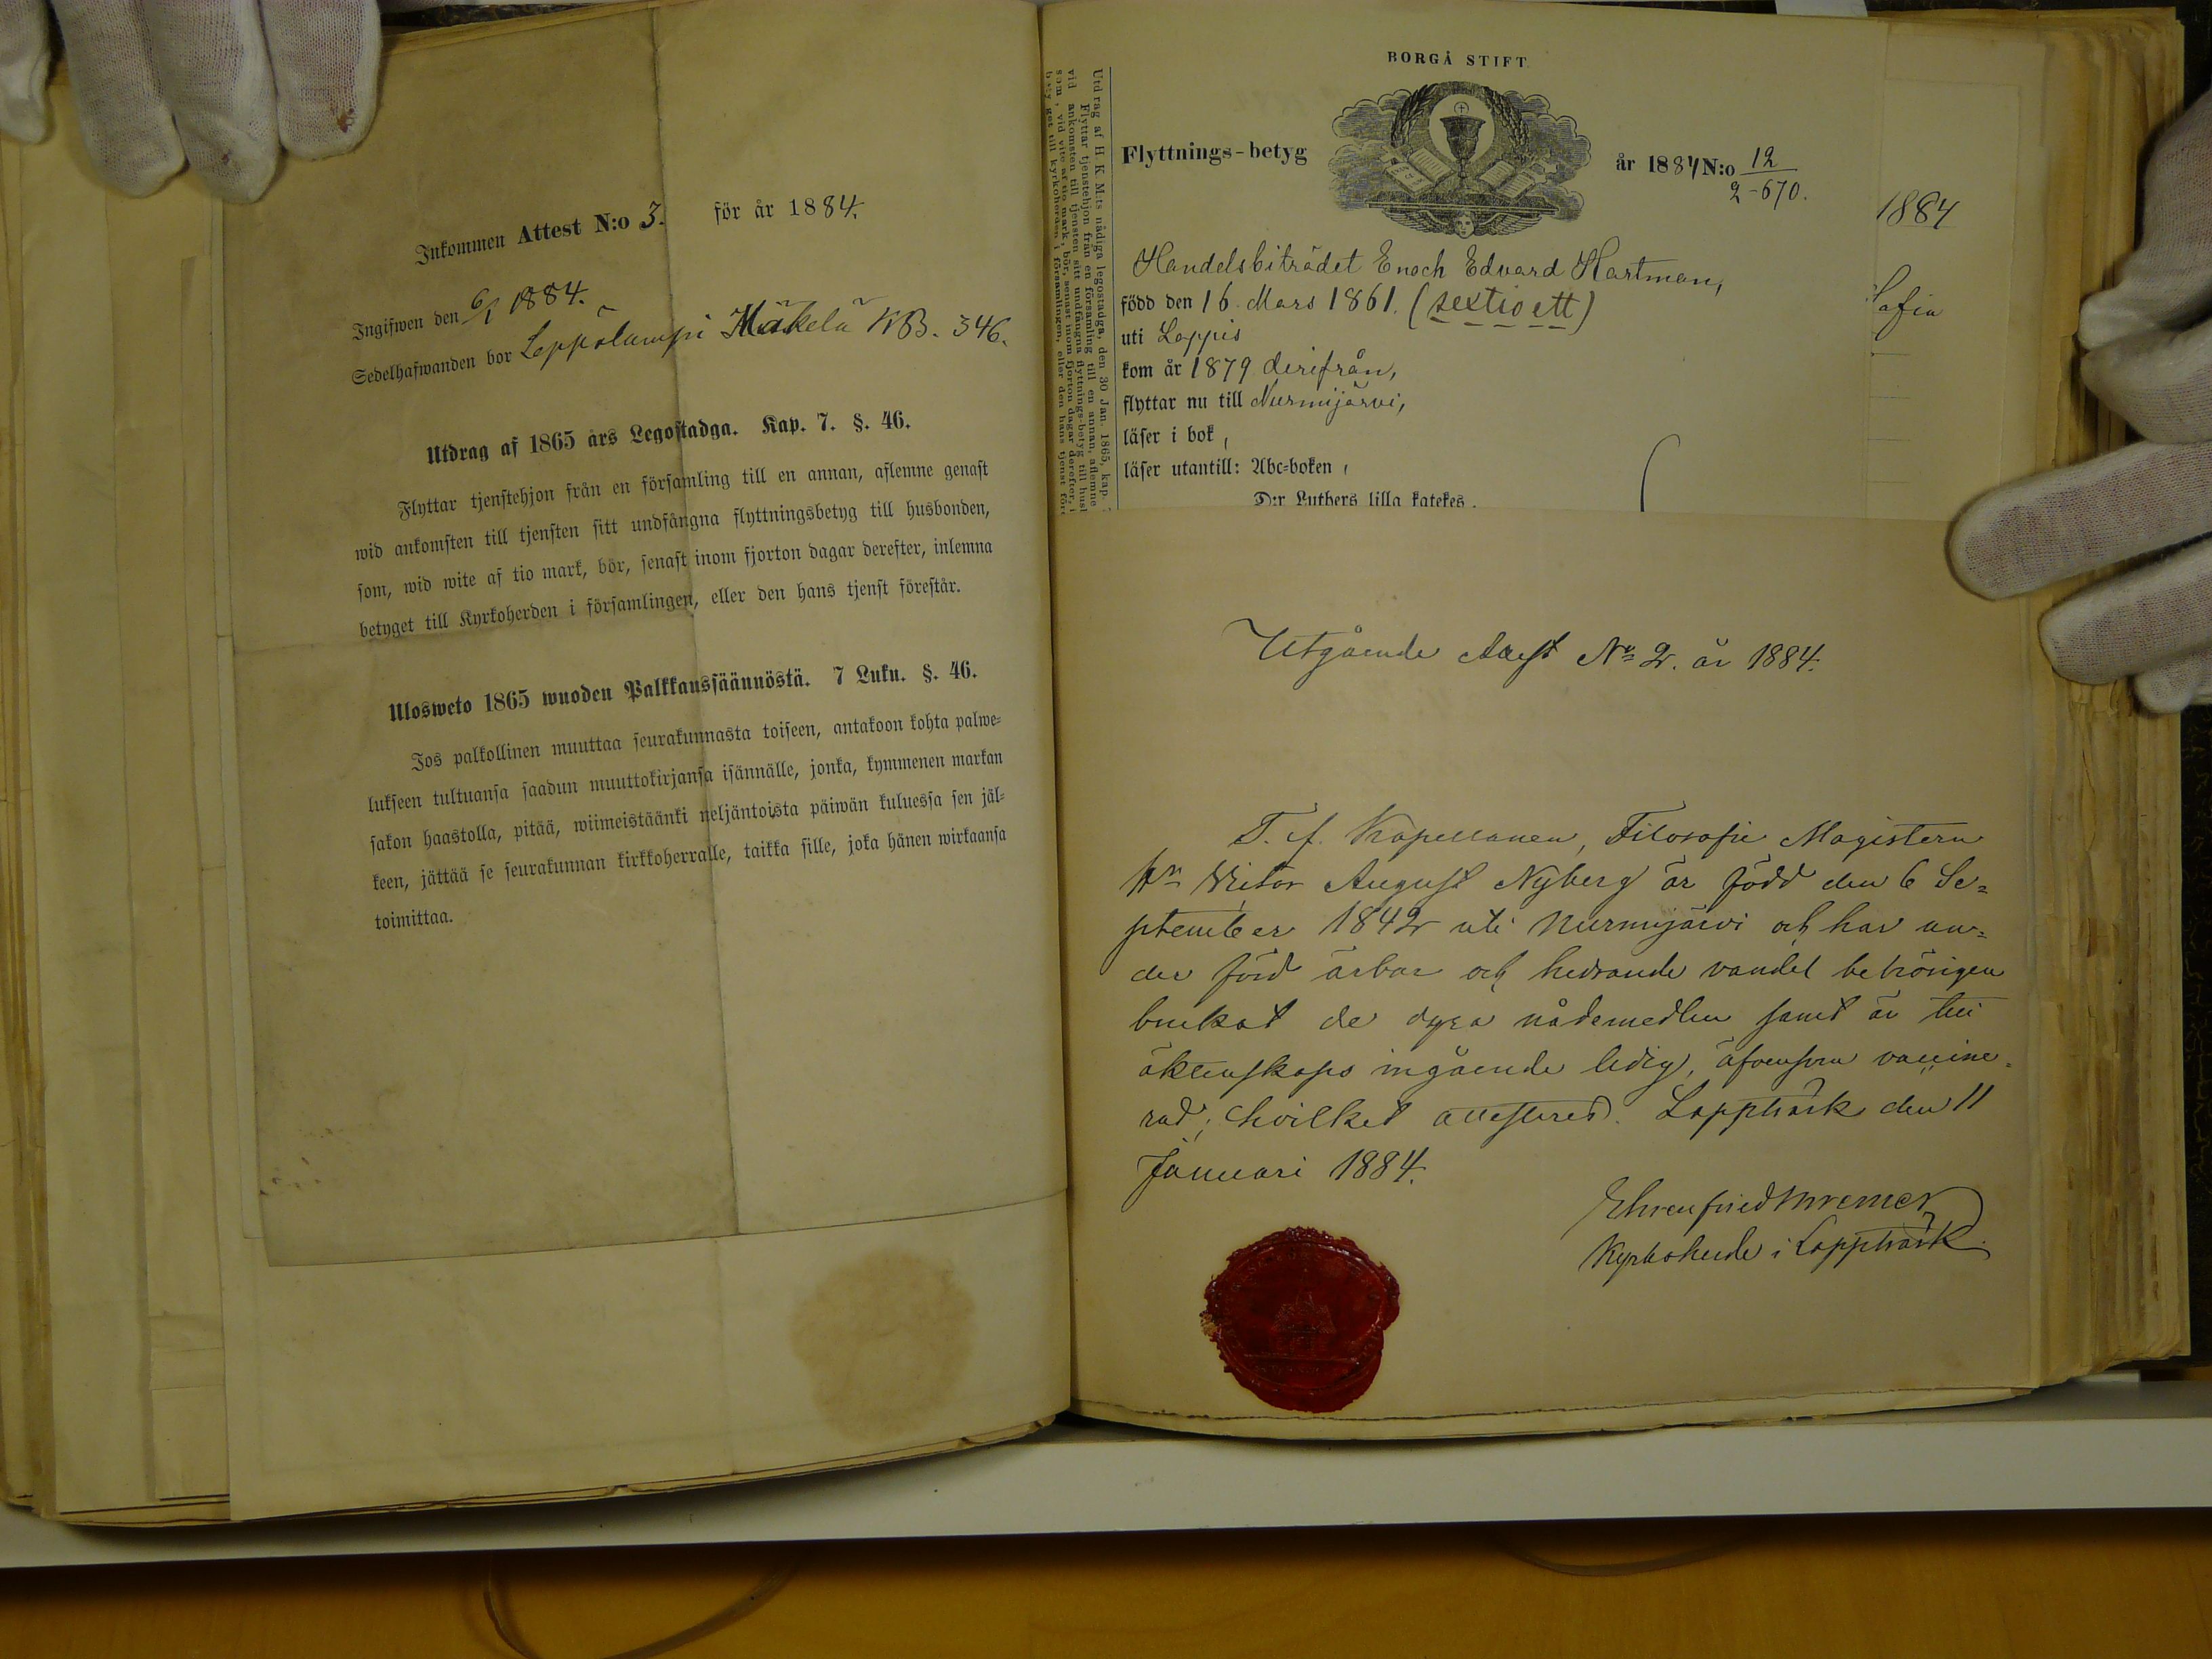 Inkommen Attest N:o 3. för år 1884.
Ingifwen den 6/1 1884.
Sedelhafwanden bor Leppälampi Mäkelä KB. 346.
Utdrag af 1865 års Legostadga. Kap. 7. §. 46.
Flyttar tjenstehjon från en församling till en annan, aflemne genast
wid ankomsten till tjensten sitt undfångna flyttningsbetyg till husbonden,
som, wid wite af tio mark, bör, senast inom fjorton dagar derefter, inlemna
betyget till Kyrkoherden i församlingen, eller den hans tjenst förestår.
Ulosweto 1865 wuoden Palkkaussäännöstä. 7 Luku. §. 46.
Jos palkollinen muuttaa seurakunnasta toiseen, antakoon kohta palwe=
lukseen tultuansa saadun muuttokirjansa isännälle, jonka, kymmenen markan
sakon haastolla, pitää, wiimeistäänki neljäntoista päiwän kuluessa sen jäl=
keen, jättää se seurakunnan kirkkoherralle, taikka sille, joka hänen wirkaansa
toimittaa.
Utdrag af H. K. M:ts nådiga legostadga, den 30 Jan. 1865, kap.
Flyttar tjenstehjon från en församling till en annan, aflemne
vid ankomsten till tjensten sitt undfångna flyttnings-betyg till husb
som, vid vite af tio mark, bör, senast inom fjorton dagar derefter, i
betyget till kyrkoherden i församlingen, eller den hans tjenst före
BORGÅ STIFT
Flyttnings-betyg år 1884 N:o 12
2-670.
Handelsbiträdet Enoch Edvard Hartman,
född den 16 Mars 1861. (sextio ett)
uti Loppis
kom år 1879 derifrån,
flyttar nu till Nurmijärvi,
läser i bok,
läser utantill: Abc=boken,
D:r Luthers lilla katekes.
1884
Sofia
Utgående Attest No 2. år 1884.
T. f. Kapellanen, Filosofie Magistern
Hr Victor August Nyberg är född den 6 Se=
ptember 1842 uti Nurmijärvi och har un=
der förd ärbar och hedrande vandel behörigen
brukat de dyra nådemedlen samt är till
äktenskaps ingående ledig, äfvensom vaccine=
rad; hvilket attesteras. Lappträsk den 11
Januari 1884.
Kyrkoherde i Lappträsk.